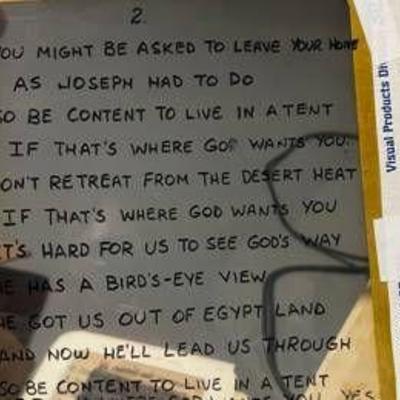 2.
YOU MIGHT BE ASKED TO LEAVE YOUR HOME
AS JOSEPH HAD TO DO
SO BE CONTENT TO LIVE IN A TENT
IF THAT'S WHERE GOD WANTS YOU.
DON'T RETREAT FROM THE DESERT HEAT
IF THAT'S WHERE GOD WANTS YOU
IT'S HARD FOR US TO SEE GOD'S WAY
HE HAS A BIRD'S-EYE VIEW
HE GOT US OUT OF EGYPT LAND
AND NOW HE'LL LEAD US THROUGH
SO BE CONTENT TO LIVE IN A TENT
WHERE GOD WANTS YOU YES
Visual Products Di